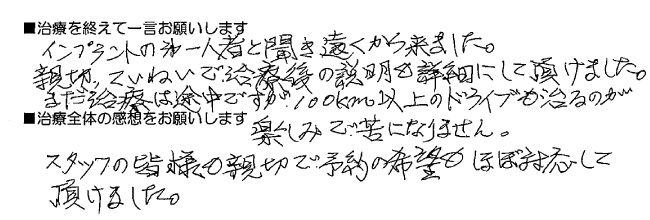 ■治療を終えて一言お願いします
インプラントの第一人者と聞き遠くから来ました。
親切、ていねいで治療後の説明も詳細にして頂けました。
まだ治療は途中ですが、100km以上のドライブも治るのが
■治療全体の感想をお願いします
楽しみで苦になりません。
スタッフの皆様も親切で予約の希望もほぼ対応して
頂けました。